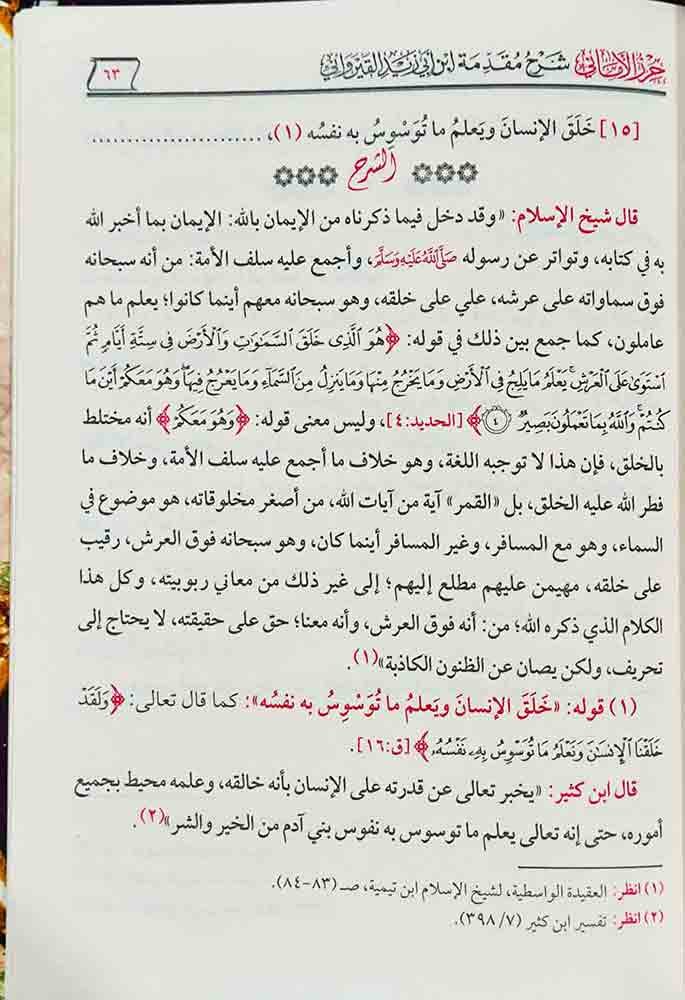 حرز الأماني شرح مقدمة ابن أبي زيد القيرواني
٦٣
[١٥] خَلَقَ الإنسانَ ويَعلمُ ما تُوَسْوِسُ به نفسُه (١)، ......................
الشرح
قال شيخ الإسلام: «وقد دخل فيما ذكرناه من الإيمان بالله: الإيمان بما أخبر الله
به في كتابه، وتواتر عن رسوله صَلَّى اللَّهُ عَلَيْهِ وَسَلَّمَ، وأجمع عليه سلف الأمة: من أنه سبحانه
فوق سماواته على عرشه، علي على خلقه، وهو سبحانه معهم أينما كانوا؛ يعلم ما هم
عاملون، كما جمع بين ذلك في قوله: ﴿هُوَ ٱلَّذِى خَلَقَ ٱلسَّمَٰوَٰتِ وَٱلْأَرْضَ فِى سِتَّةِ أَيَّامٍ ثُمَّ
ٱسْتَوَىٰ عَلَى ٱلْعَرْشِ ۚ يَعْلَمُ مَا يَلِجُ فِى ٱلْأَرْضِ وَمَا يَخْرُجُ مِنْهَا وَمَا يَنزِلُ مِنَ ٱلسَّمَآءِ وَمَا يَعْرُجُ فِيهَا ۖ وَهُوَ مَعَكُمْ أَيْنَ مَا
كُنتُمْ ۚ وَٱللَّهُ بِمَا تَعْمَلُونَ بَصِيرٌ ۝٤﴾ [الحديد:٤]، وليس معنى قوله: ﴿وَهُوَ مَعَكُمْ﴾ أنه مختلط
بالخلق، فإن هذا لا توجبه اللغة، وهو خلاف ما أجمع عليه سلف الأمة، وخلاف ما
فطر الله عليه الخلق، بل «القمر» آية من آيات الله، من أصغر مخلوقاته، هو موضوع في
السماء، وهو مع المسافر، وغير المسافر أينما كان، وهو سبحانه فوق العرش، رقيب
على خلقه، مهيمن عليهم مطلع إليهم؛ إلى غير ذلك من معاني ربوبيته، وكل هذا
الكلام الذي ذكره الله؛ من: أنه فوق العرش، وأنه معنا؛ حق على حقيقته، لا يحتاج إلى
تحريف، ولكن يصان عن الظنون الكاذبة»(١).
(١) قوله: «خَلَقَ الإنسانَ ويَعلمُ ما تُوَسْوِسُ به نفسُه»: كما قال تعالى: ﴿وَلَقَدْ
خَلَقْنَا ٱلْإِنسَٰنَ وَنَعْلَمُ مَا تُوَسْوِسُ بِهِۦ نَفْسُهُۥ﴾ [ق:١٦].
قال ابن كثير: «يخبر تعالى عن قدرته على الإنسان بأنه خالقه، وعلمه محيط بجميع
أموره، حتى إنه تعالى يعلم ما توسوس به نفوس بني آدم من الخير والشر»(٢).
(١) انظر: العقيدة الواسطية، لشيخ الإسلام ابن تيمية، صـ (٨٣-٨٤).
(٢) انظر: تفسير ابن كثير (٧/ ٣٩٨).